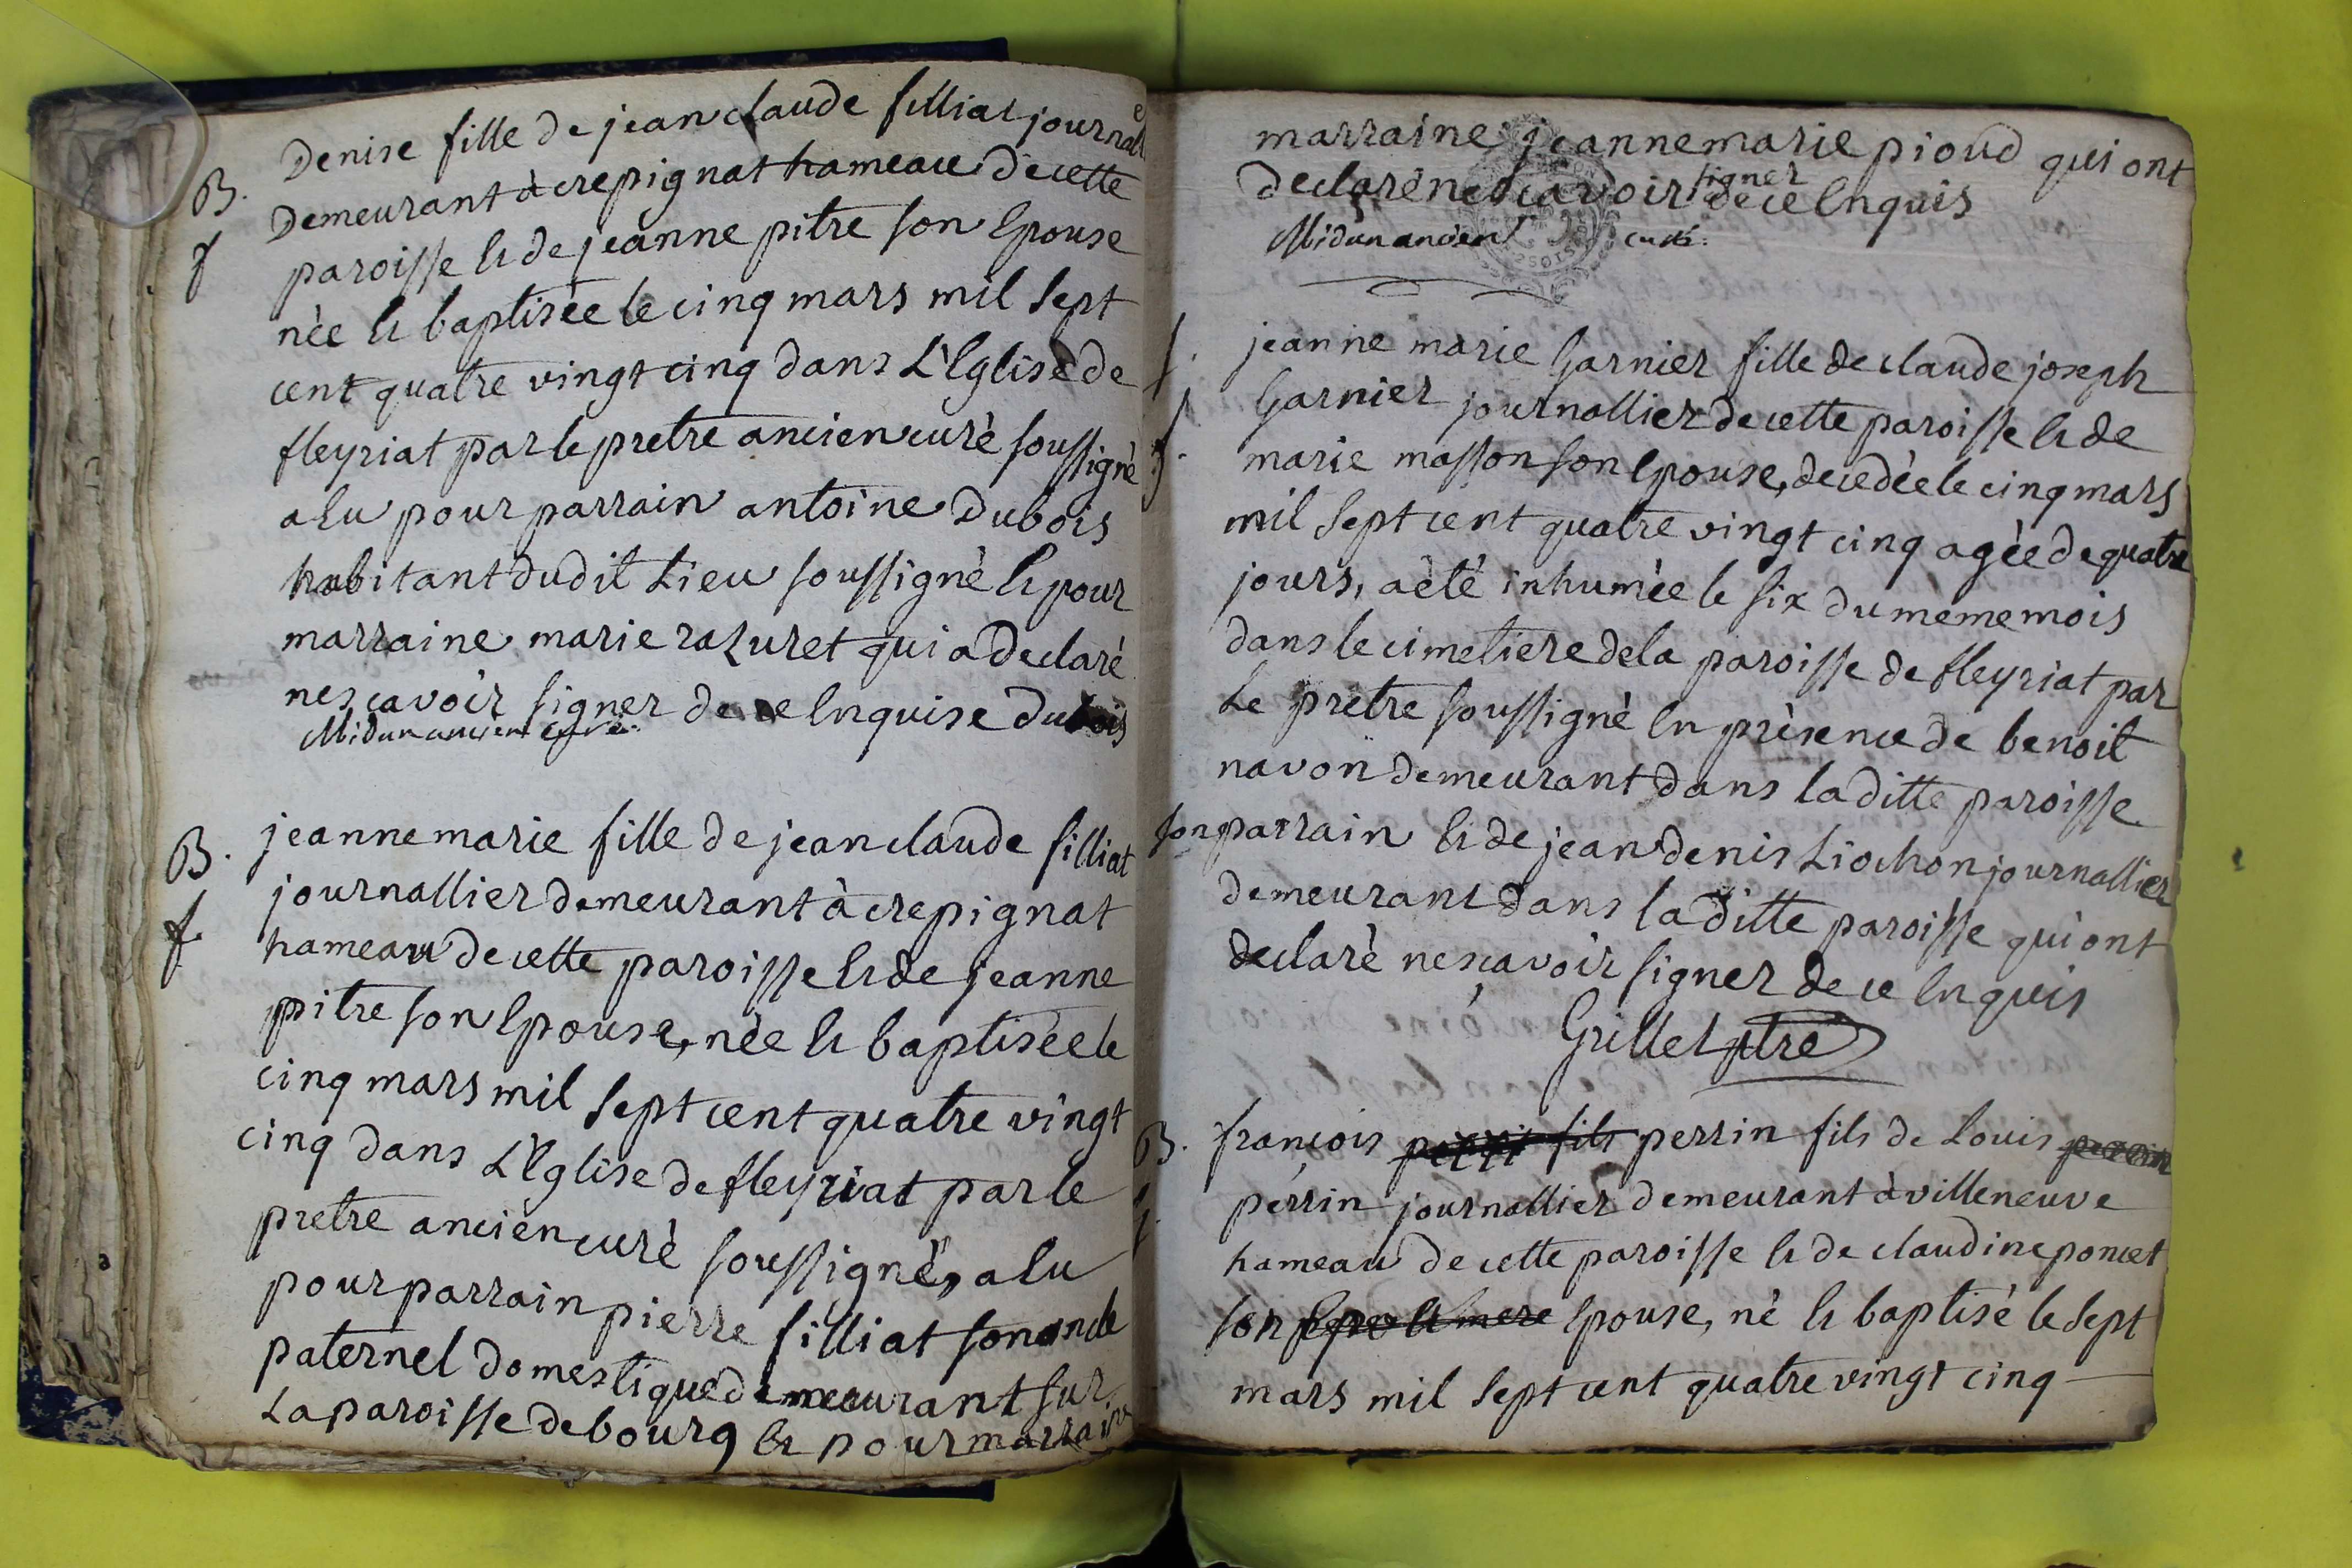 Denise fille de jean claude filliat journalle
B. Demeurant à crepignat hameau de cette
f paroisse et de jeanne pitre son epouse
nèe et baptisèe le cinq mars mil sept
cent quatre vingt cinq dans L'Eglise de
fleyriat par le pretre ancien curè soussignè
a eu pour parrain antoine Dubois
habitant dudit Lieu soussignè et pour
marraine marie razuret qui a declarè
nesçavoir signer de ce enquise dubois
Midun ancien curé
B. jeanne marie fille de jean claude filliat
journallier demeurant à crepignat
f. hameau de cette paroisse et de jeanne
pitre son epouse, nèe et baptisèe le
cinq mars mil sept cent quatre vingt
cinq dans L'Eglise de fleyriat par le
pretre ancien curè soussignè, a eu
pour parrain pierre filliat son oncle
paternel domestique demeurant sur
La paroisse de bourg et pour marraine
marraine jeanne marie pioud qui ont
declarè ne sçavoir signer de ce enquis
Midun ancien curé.
f. jeanne marie Garnier fille de claude joseph
Garnier journallier de cette paroisse et de
marie masson son epouse, decedèe le cinq mars
mil sept cent quatre vingt cinq agèe de quatre
jours, a èté inhumèe le six du meme mois
dans le cimetiere de la paroisse de fleyriat par
Le pretre soussignè en prèsence de benoit
navon demeurant dans la ditte paroisse
son parrain et de jean denis Liochon journallier
demeurant dans la ditte paroisse qui ont
declarè nesçavoir signer de ce enquis
Grillet ptre
B. françois perri fils perrin fils de Louis perrin
perrin journallier demeurant à villeneuve
hameau de cette paroisse et de claudine poncet
son pere et mere epouse, nè et baptisè le sept
mars mil sept cent quatre vingt cinq